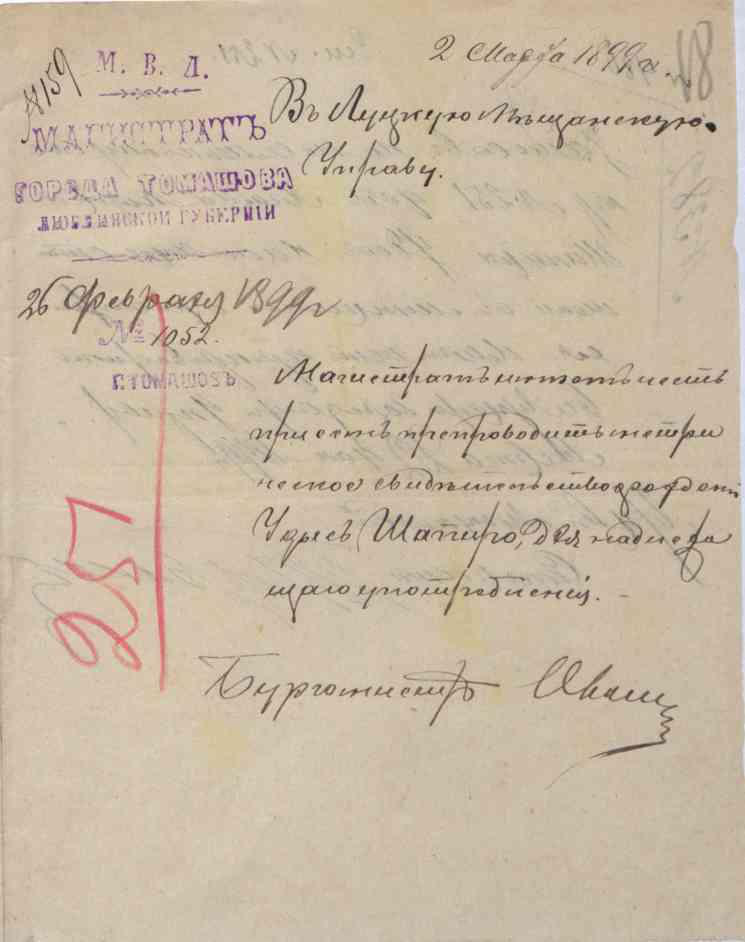 2 Марта 1899 г.
№ 159
М. В. Д.
МАГИСТРАТЪ
ГОРОДА ТОМАШОВА
ЛЮБЛИНСКОЙ ГУБЕРНІИ
26 Февраля 1899 г.
№ 1052.
Г. ТОМАШОВЪ
Въ Луцкую Мѣщанскую
Управу.
Магистратъ имѣетъ честь
при семъ препроводить метри
ческое свидѣтельство о рожденіи
Шапиро, для надлежа
щаго употребленія.
257
Бургомистръ